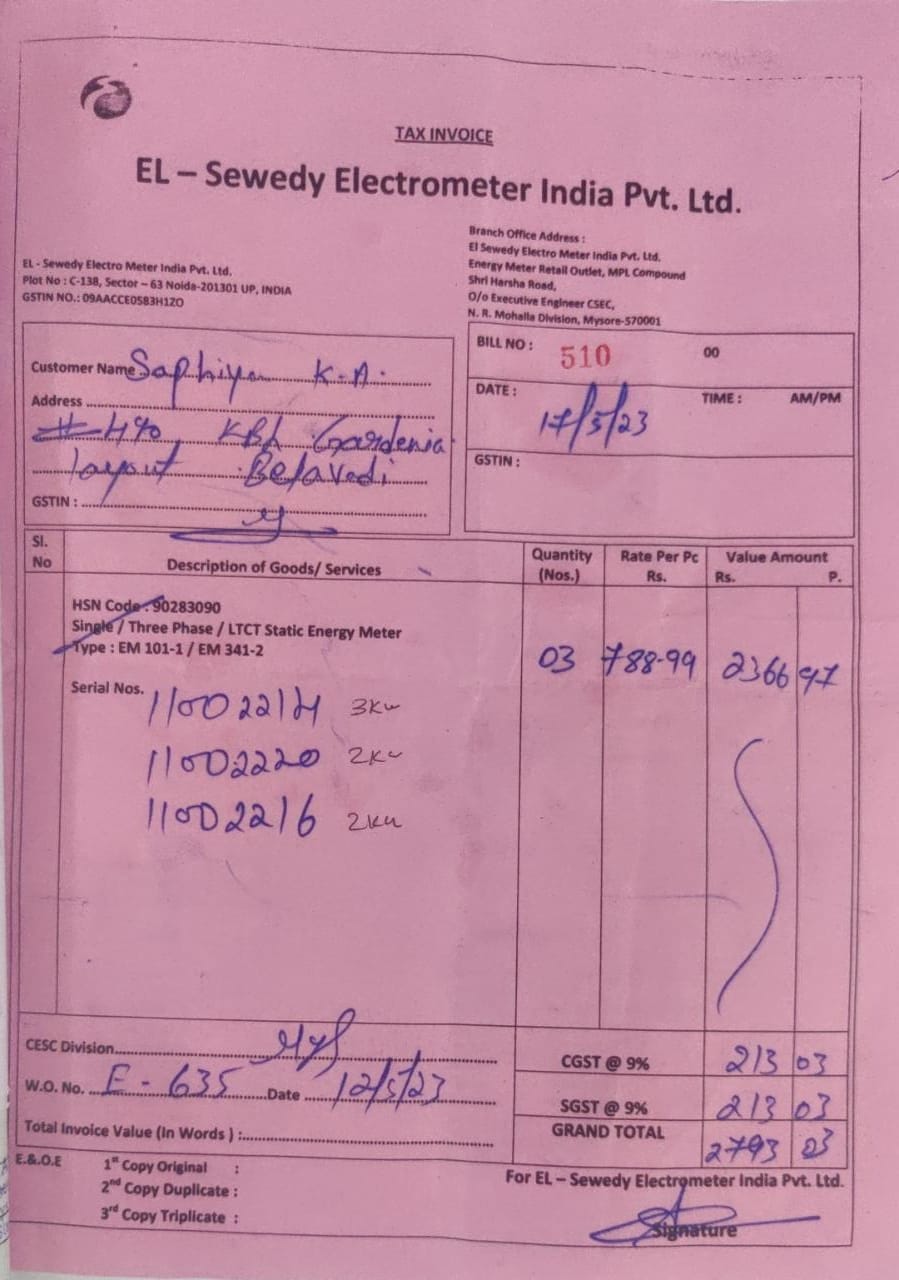 TAX INVOICE
EL – Sewedy Electrometer India Pvt. Ltd.
EL - Sewedy Electro Meter India Pvt. Ltd.
Plot No : C-138, Sector – 63 Noida-201301 UP, INDIA
GSTIN NO.: 09AACCE0583H1ZO
Branch Office Address :
El Sewedy Electro Meter India Pvt. Ltd.
Energy Meter Retail Outlet, MPL Compound
Shri Harsha Road,
O/o Executive Engineer CSEC,
N. R. Mohalla Division, Mysore-570001
Customer Name Saphiya K.A.
Address
KBL Gardenia
layout Belavadi
GSTIN :
BILL NO : 510 00
DATE : 17/5/23 TIME : AM/PM
GSTIN :
Sl. No Description of Goods/ Services Quantity (Nos.) Rate Per Pc Rs. Value Amount Rs. P.
HSN Code : 90283090
Single / Three Phase / LTCT Static Energy Meter
Type : EM 101-1 / EM 341-2
03 788-99 2366 97
Serial Nos.
11002214 3KW
11002220 2KW
11002216 2KW
CESC Division
W.O. No. E - 635 Date 12/5/23
Total Invoice Value (In Words ) :
CGST @ 9% 213 03
SGST @ 9% 213 03
GRAND TOTAL 2793 03
E.&.O.E 1st Copy Original :
2nd Copy Duplicate :
3rd Copy Triplicate :
For EL – Sewedy Electrometer India Pvt. Ltd.
Signature